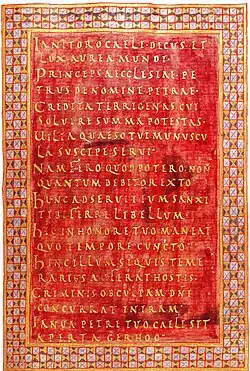 IANITOR O CAELI DECUS ET
LUX AUREA MUNDI
PRINCEPS AECCLESIAE PE
TRUS DE NOMINE PETRAE
CREDITA TERRIGENAS CUI
SOLVERE SUMMA POTESTAS
VILIA QUAESO TUI MUNUSCU
LA SUSCIPE SERVI
NAM FERO QUOD POTERO NON
QUANTUM DEBITOR EXTO
HUNC AD SERVITIUM SANXI
TIBI FERRE LIBELLUM
HIC IN HONORE TUO MANEAT
QUO TEMPORE CUNCTO
HINC ILLUM SI QUIS TEME
RARIT HOSTIS
CRIMINIS OB CULPAM DNI
CONCURRAT IN IRAM
IANUA PETRE TUO CAELI SIT
APERTA GERHOO